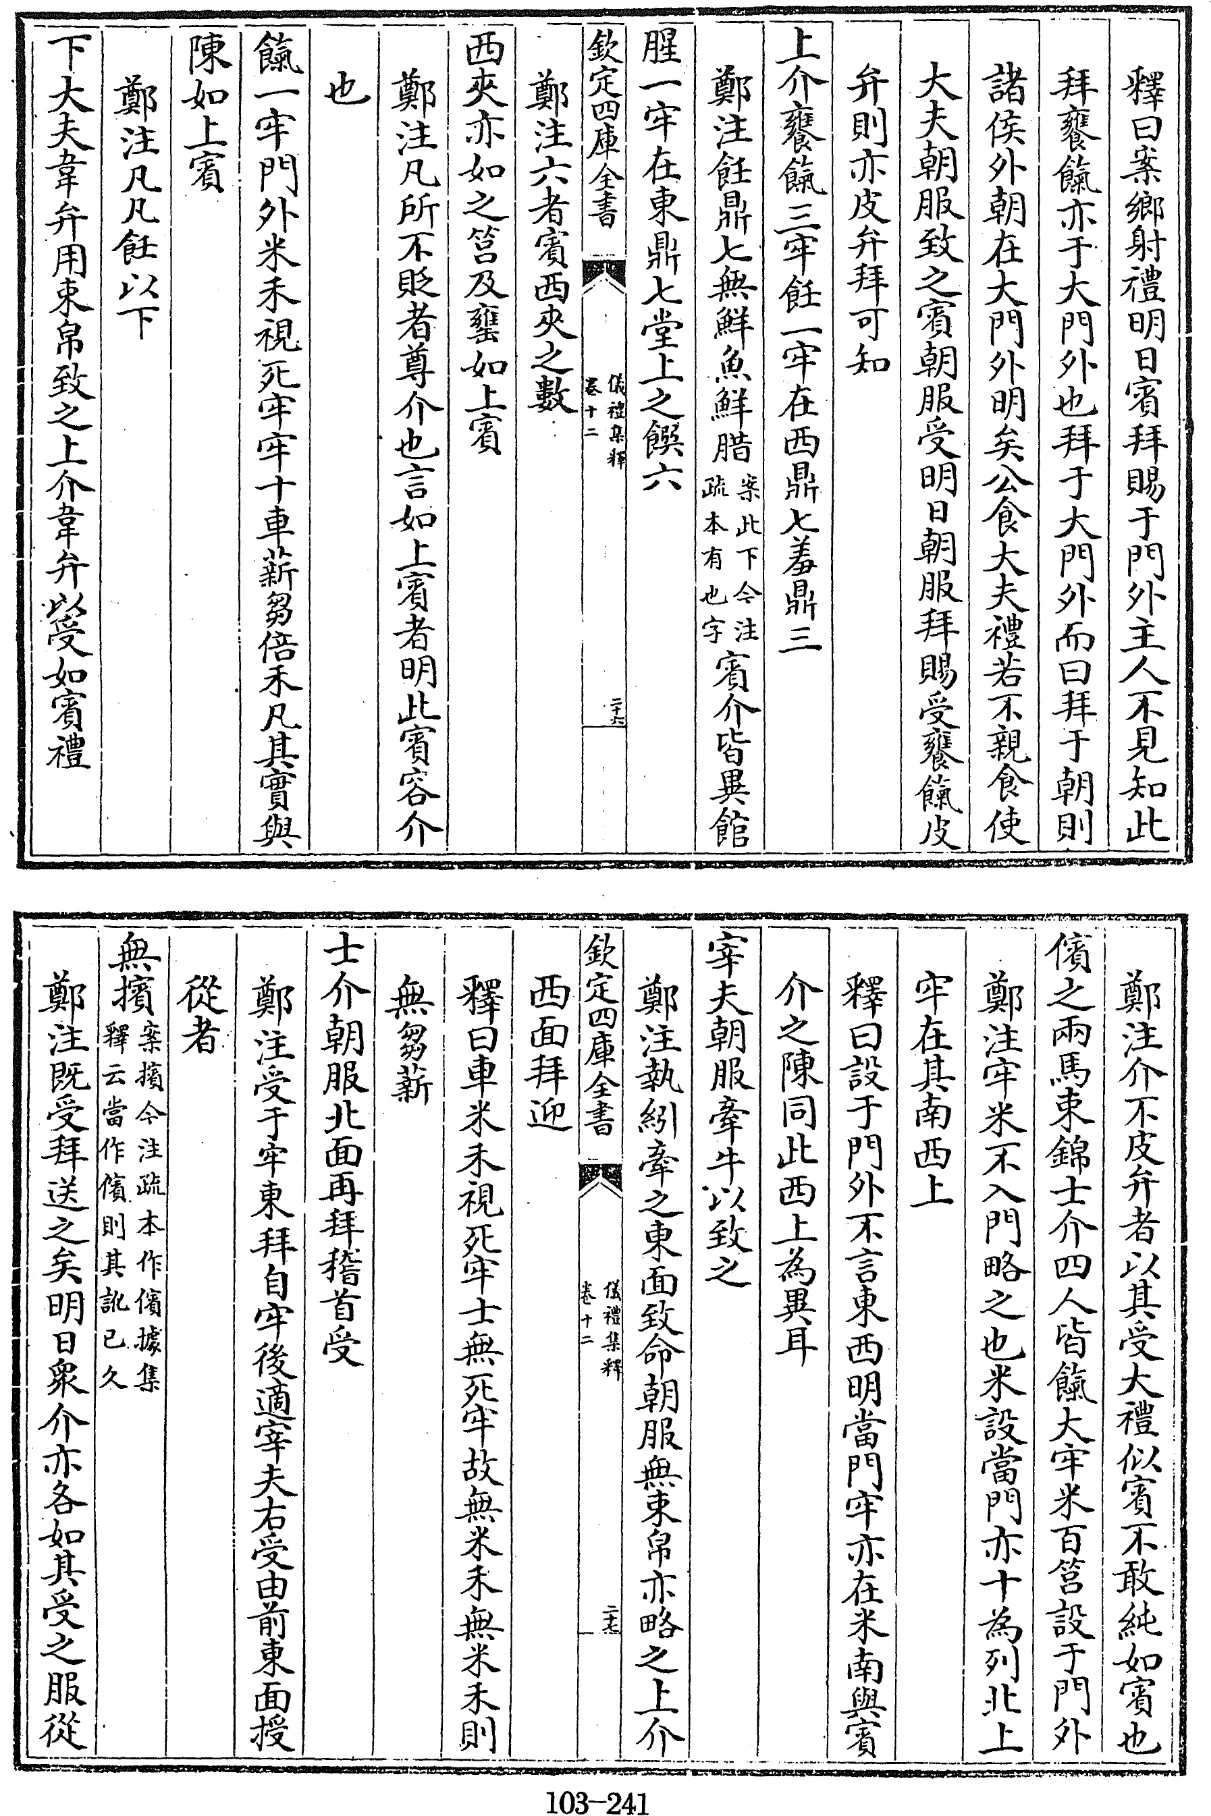 釋曰案鄉射禮明日賓拜賜于門外主人不見知此
拜饔餼亦于大門外也拜于大門外而曰拜于朝則
諸侯外朝在大門外明矣公食大夫禮若不親食使
大夫朝服致之賓朝服受明日朝服拜賜受饔餼皮
弁則亦皮弁拜可知
上介饔餼三牢飪一牢在西鼎七羞鼎三
鄭注飪鼎七無鮮魚鮮腊案此下今注疏本有也字賓介皆異館
腥一牢在東鼎七堂上之饌六
欽定四庫全書
儀禮集釋
卷十二
二十六
鄭注六者賓西夾之數
西夾亦如之筥及罋如上賓
鄭注凡所不貶者尊介也言如上賓者明此賓容介
也
餼一牢門外米禾視死牢牢十車薪芻倍禾凡其實與
陳如上賓
鄭注凡凡飪以下
下大夫韋弁用束帛致之上介韋弁以受如賓禮
鄭注介不皮弁者以其受大禮似賓不敢純如賓也
儐之兩馬束錦士介四人皆餼大牢米百筥設于門外
鄭注牢米不入門略之也米設當門亦十為列北上
牢在其南西上
釋曰設于門外不言東西明當門牢亦在米南與賓
介之陳同此西上為異耳
宰夫朝服牽牛以致之
鄭注執紖牽之東面致命朝服無束帛亦略之上介
欽定四庫全書
儀禮集釋
卷十二
二十七
西面拜迎
釋曰車米禾視死牢士無死牢故無米禾無米禾則
無芻薪
士介朝服北面再拜稽首受
鄭注受于牢東拜自牢後適宰夫右受由前東面授
從者
無擯案擯今注疏本作儐據集釋云當作儐則其訛已久
鄭注既受拜送之矣明日衆介亦各如其受之服從
103-241